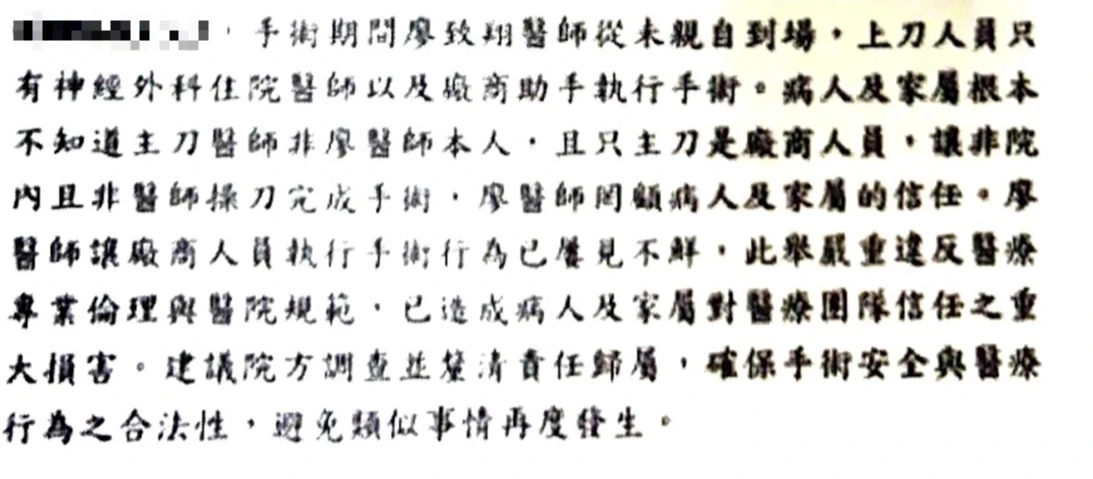 ，手術期間廖致翔醫師從未親自到場，上刀人員只
有神經外科住院醫師以及廠商助手執行手術。病人及家屬根本
不知道主刀醫師非廖醫師本人，且只主刀是廠商人員，讓非院
內且非醫師操刀完成手術，廖醫師罔顧病人及家屬的信任。廖
醫師讓廠商人員執行手術行為已屢見不鮮，此舉嚴重違反醫療
專業倫理與醫院規範，已造成病人及家屬對醫療團隊信任之重
大損害。建議院方調查並釐清責任歸屬，確保手術安全與醫療
行為之合法性，避免類似事情再度發生。